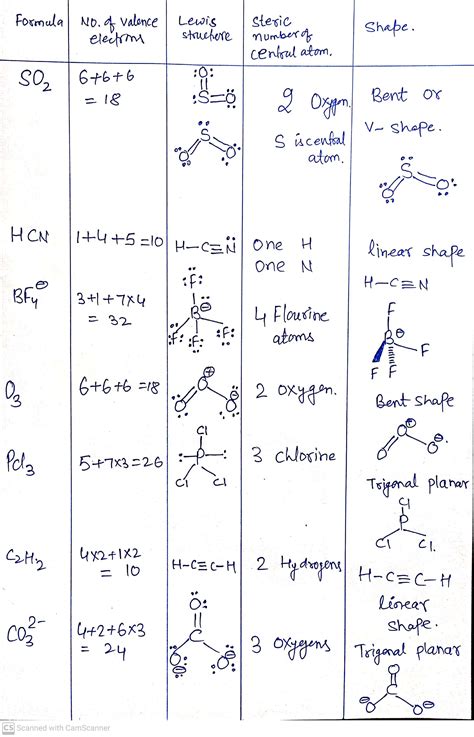 Formula | No. of Valence electrons | Lewis structure | Steric number of central atom. | Shape.
SO2 | 6+6+6 = 18 | :O: :S=O | 2 Oxygen. | Bent or V-shape.
S O O | S is central atom. | S O O
HCN | 1+4+5=10 | H-C≡N | One H One N | linear shape
H-C≡N
BF4⊖ | 3+1+7x4 = 32 | :F: B⊖ :F: :F: :F: | 4 Flourine atoms | F B⊖ F F F
O3 | 6+6+6=18 | O⊕ O O⊖ | 2 oxygen. | Bent shape
O⊕ O O⊖
Pcl3 | 5+7x3=26 | Cl P Cl Cl | 3 chlorine | Trigonal planar
Cl P Cl Cl.
C2H2 | 4x2+1x2 = 10 | H-C≡C-H | 2 Hydrogens | H-C≡C-H
linear shape.
CO3 2- | 4+2+6x3 = 24 | :O: C :O:⊖ :O:⊖ | 3 oxygens | Trigonal planar
O C ⊖O O⊖
CS Scanned with CamScanner